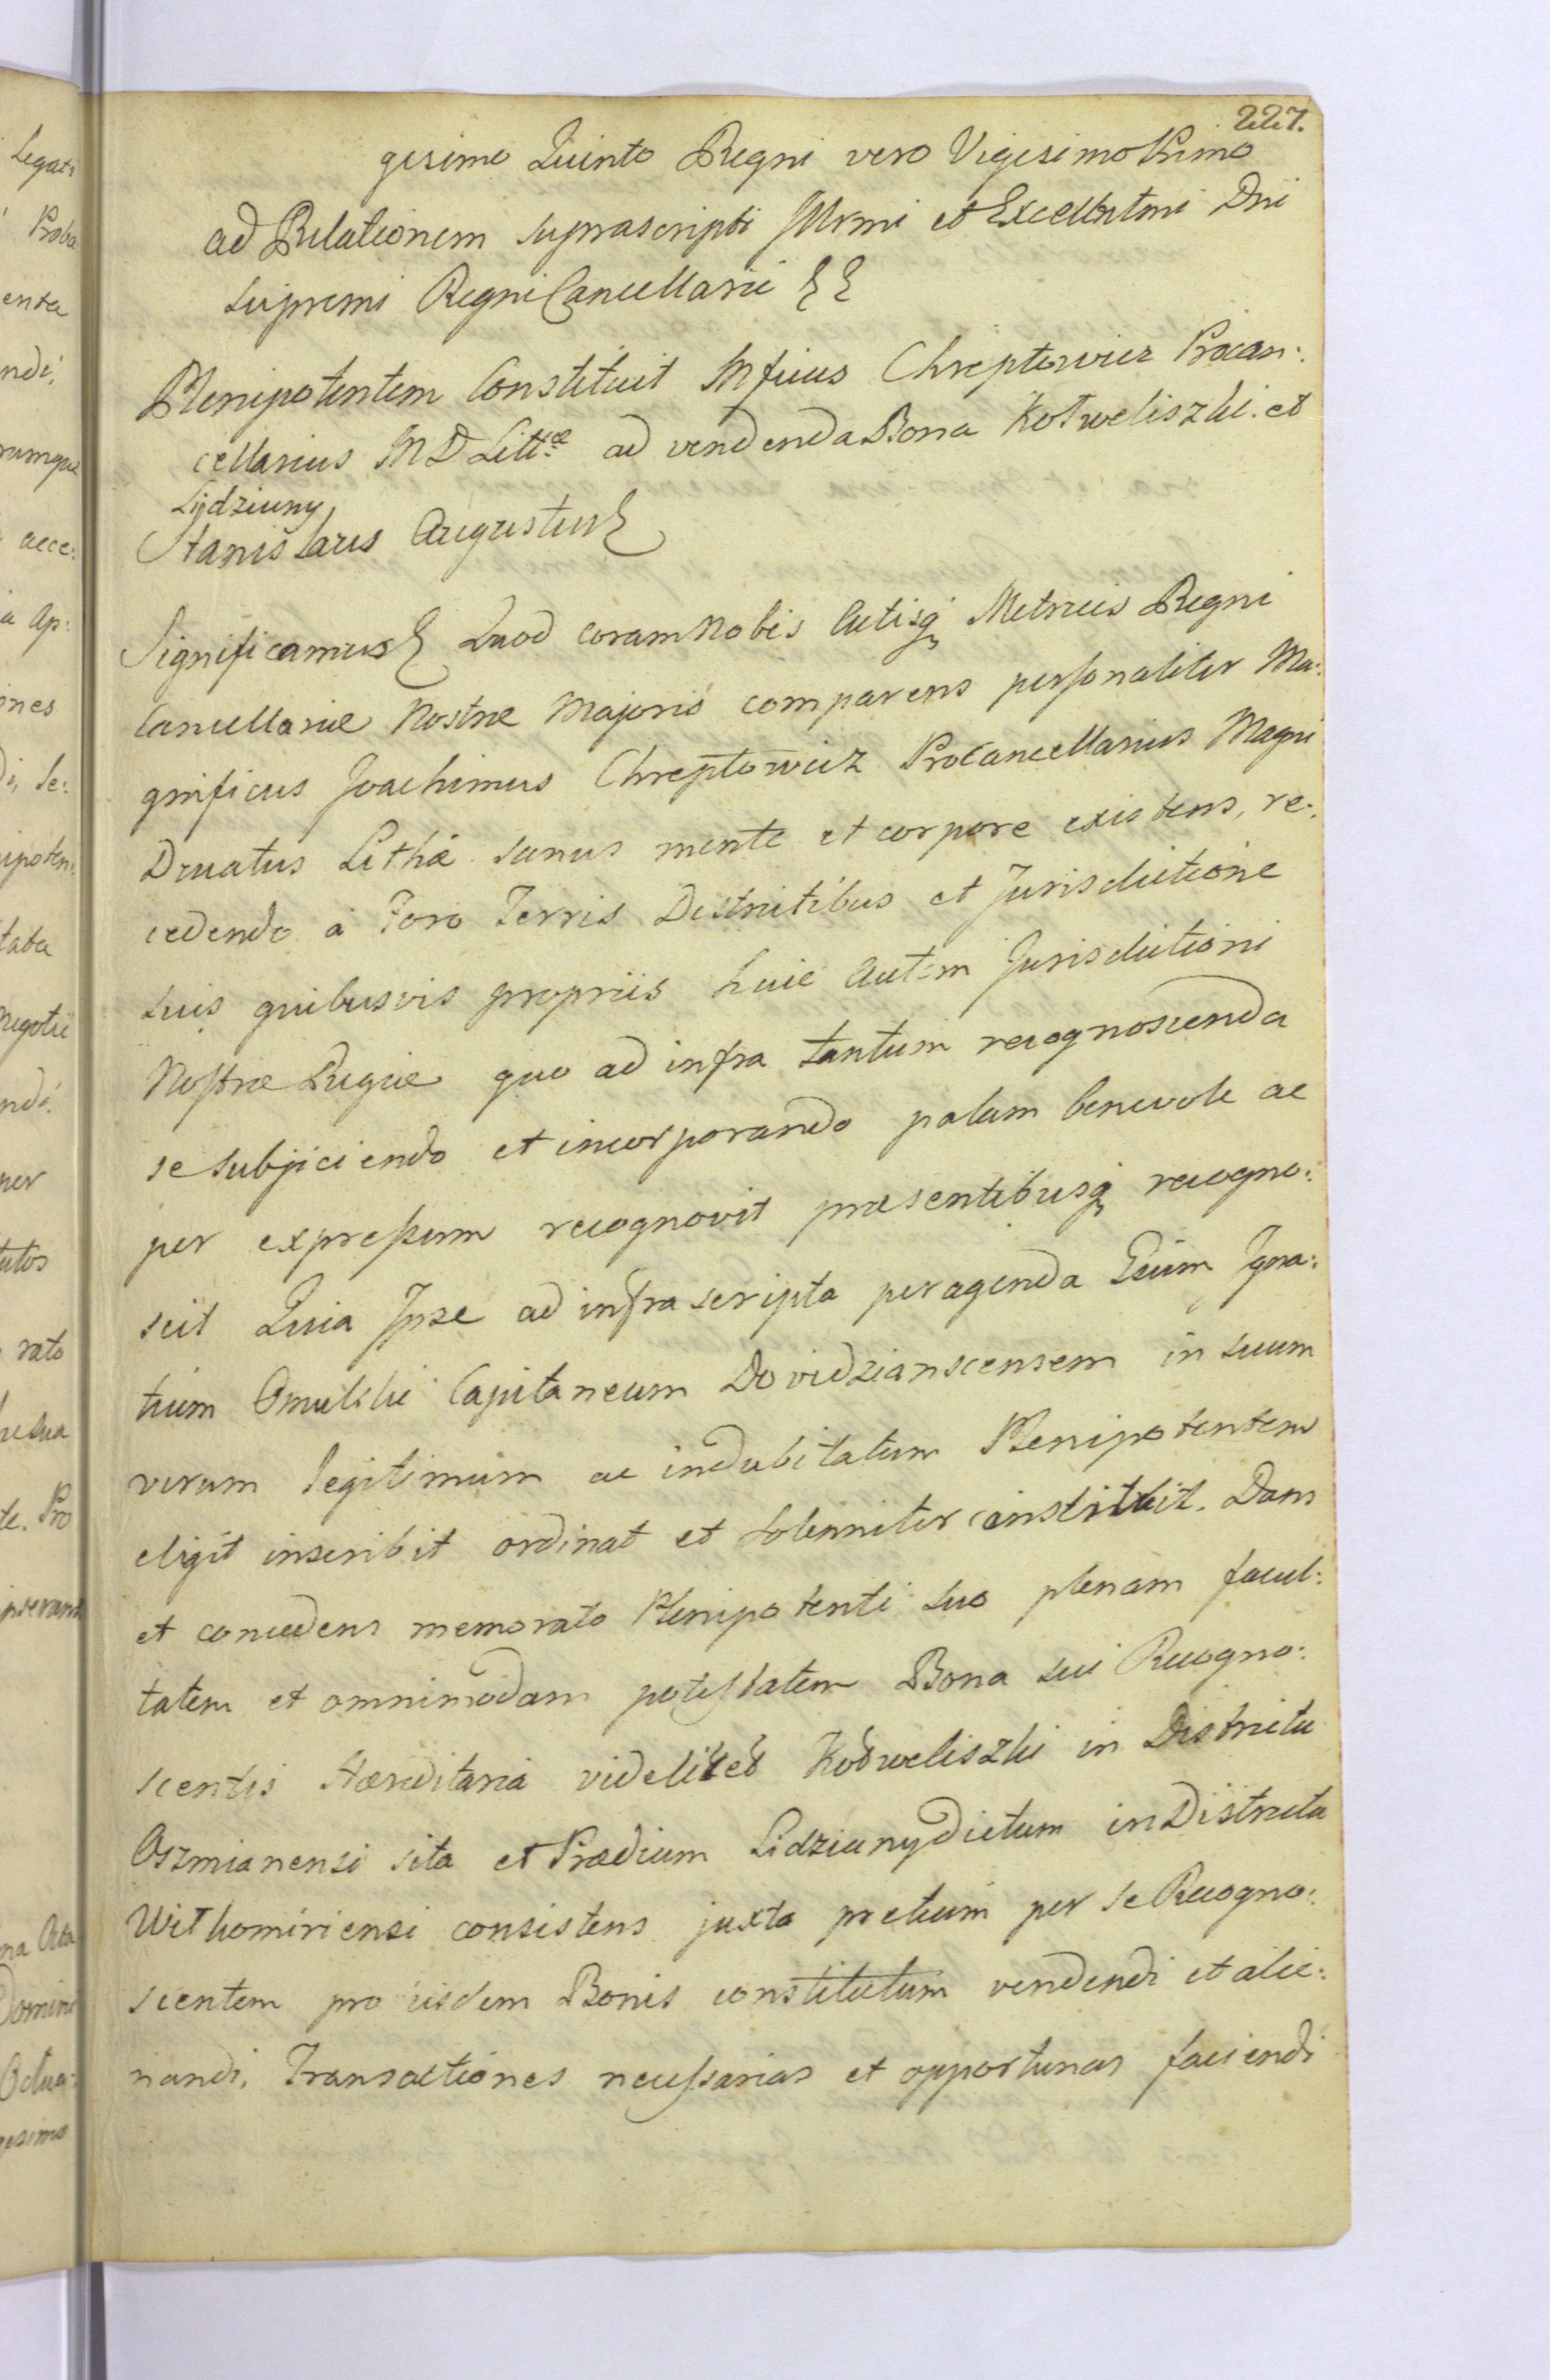 227.
gesimo Quinto Regni vero Vigesimo Primo
ad Relationem suprascripti Illrmi et Excellntmi Dni
Supremi Regni Cancellarii
Plenipotentem Constituit Mficus Chreptowicz Procan:
cellarius M D Littæ ad vendenda Bona Kotweliszki et
Lydziuny
Stanislaus Augustus
Significamus Quod coram Nobis Actisq Metricis Regni
Cancellariæ Nostræ Majoris comparens personaliter Ma:
gnificus Joachimus Chreptowicz ProCancellarius Magni
Drnatus Lithæ sanus mente et corpore existens, re:
cedendo a Foro Terris Districtibus et Jurisdictione
suis quibusvis propriis huic autem Jurisdictioni
Nostræ Regiæ quo ad infra tantum recognoscenda
se subjiciendo et incorporando palam benevole ac
per expressum recognovit præsentibusq recogno:
scit Quia Ipse ad infrascripta peragenda Gsum Igna:
tium Omulski Capitaneum Dovidzianscensem in suum
verum legitimum ac indubitatum Plenipotentem
eligit inscribit ordinat et solenniter constituit. Dans
et concedens memorato Plenipotenti suo plenam facul:
tatem et omnimodam potestatem Bona sui Recogno:
scentis Hæreditaria videlicet Kotweliszki in Districtu
Oszmianensi sita et Prædium Lidziuny dictum in Districtu
Wilkomiriensi consistens juxta pretium per se Recogno:
scentem pro iisdem Bonis constitutum vendendi et alie:
nandi, Transactiones necessarias et opportunas faciendi
Legati
Proba
enta
ndi,
rumque
acce:
ia Ap:
ones
di, se:
nipoten:
tata
negotii
ndi.
per
tutos
rato
te. Pro
na Acta
Domini
Octua:
gesimo